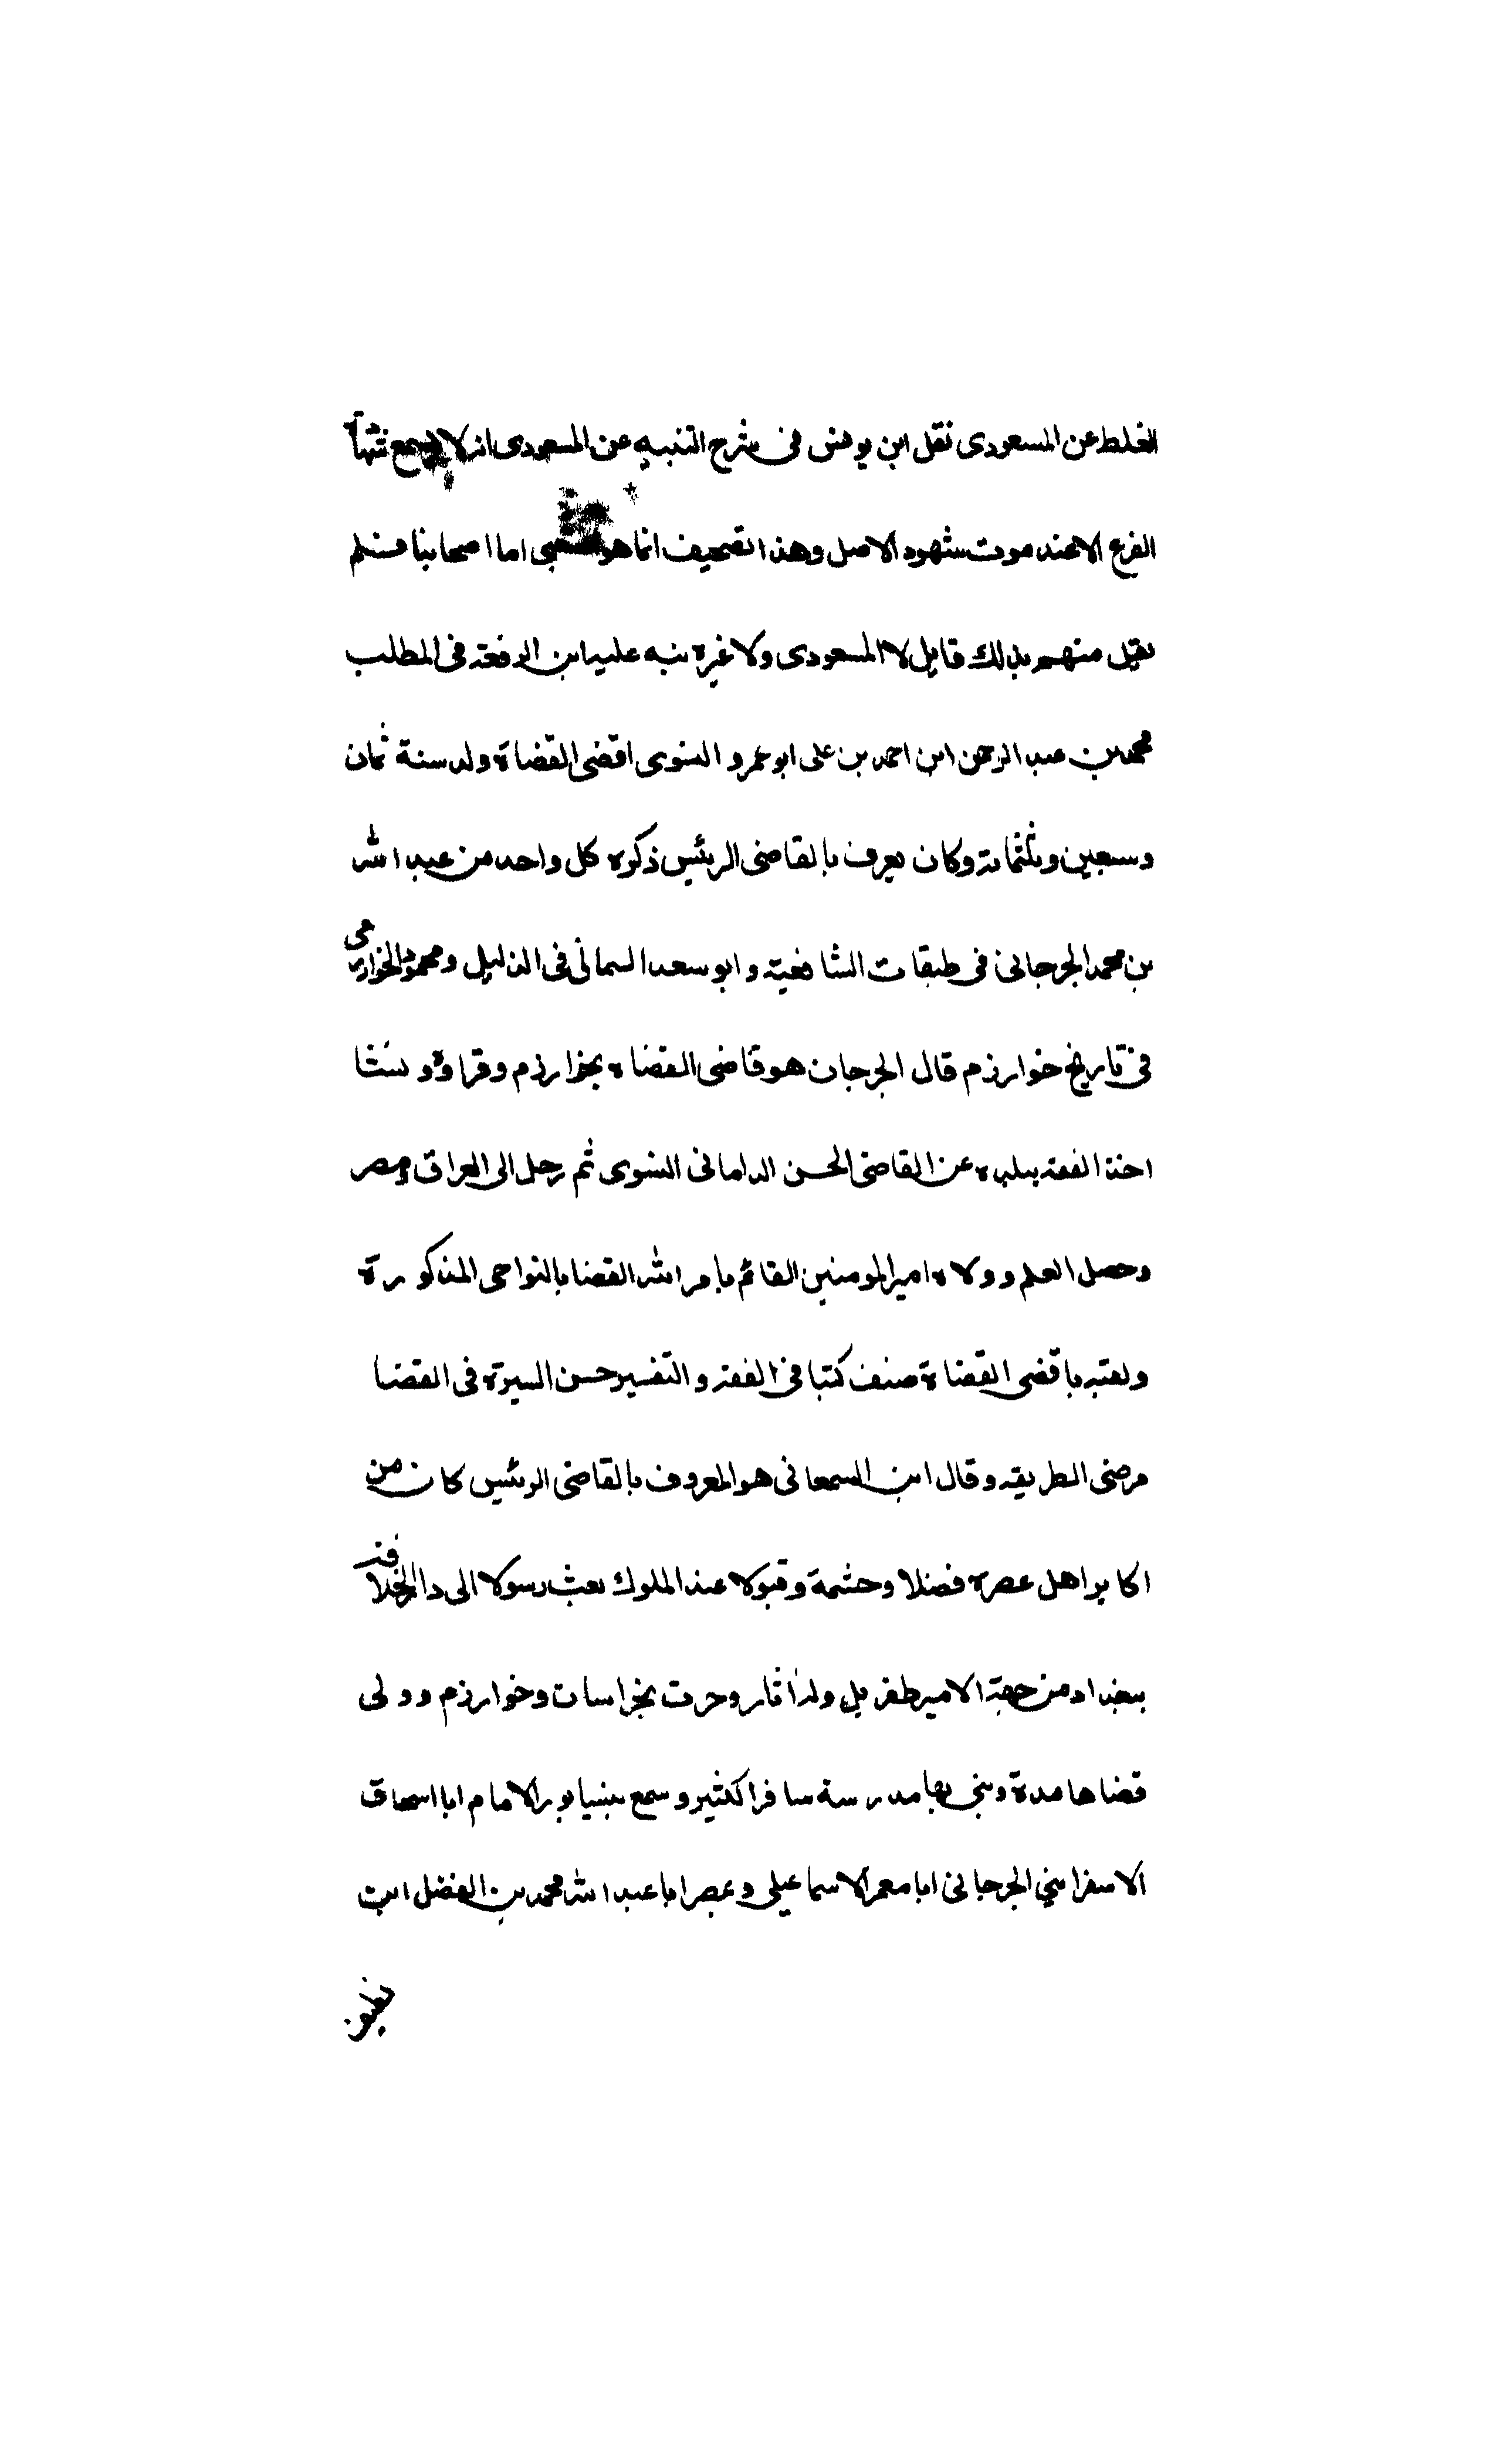 الغلط عن المسعودى نقل ابن يونس فى شرح التنبيه عن المسعودى انه لا يسمع شهاة
الفرع الا عند موت شهود الاصل وهذا التصحيف انما هو اما اصحابنا فلم
يقل منهم بذلك قايل لا المسعودى ولا غيره نبه عليه ابن الرفعة فى المطلب
محمد بن عبد الرحمن ابن احمد بن على ابو عمرو النسوى اقضى القضاة ولد سنة ثمان
وسبعين وثلثماتة وكان يعرف بالقاضى الرئيس ذكره كل واحد من عبد الله
بن محمد الجرجانى فى طبقات الشافعية وابو سعد السمانى فى الذليل ومحمود الخوارزمى
فى تاريخ خوارزم قال الجرجان هو قاضى القضاه بخوارزم وقراوة ونشا
اخذ الفقه ببلده عن القاضى الحسن الدامانى النسوى ثم رحل الى العراق ومصر
وحصل العلم وولاه امير المومنين القائم بامر الله القضا بالنواحى المذكورة
ولقبه باقضى القضاة صنف كتبا فى الفقه والتفسير حسن السيرة فى القضا
مرضى الطريقه وقال ابن السمعانى هو المعروف بالقاضى الرئيس كان من
اكابر اهل عصره فضلا وحشمة وقبولا عند الملوك بعث رسولا الى دار الخلافة
ببغداد من جهة الامير طغر بل وله اثار وحرت بخراسان وخوارزم وولى
قضاها مدة وبنى بها مدرسة سافر الكثير وسمع بنيسابور الامام ابا اسحاق
الاسفراينى الجرجانى ابا معمر الاسماعيلى وبمصر ابا عبد الله محمد بن الفضل ابن
نظيف